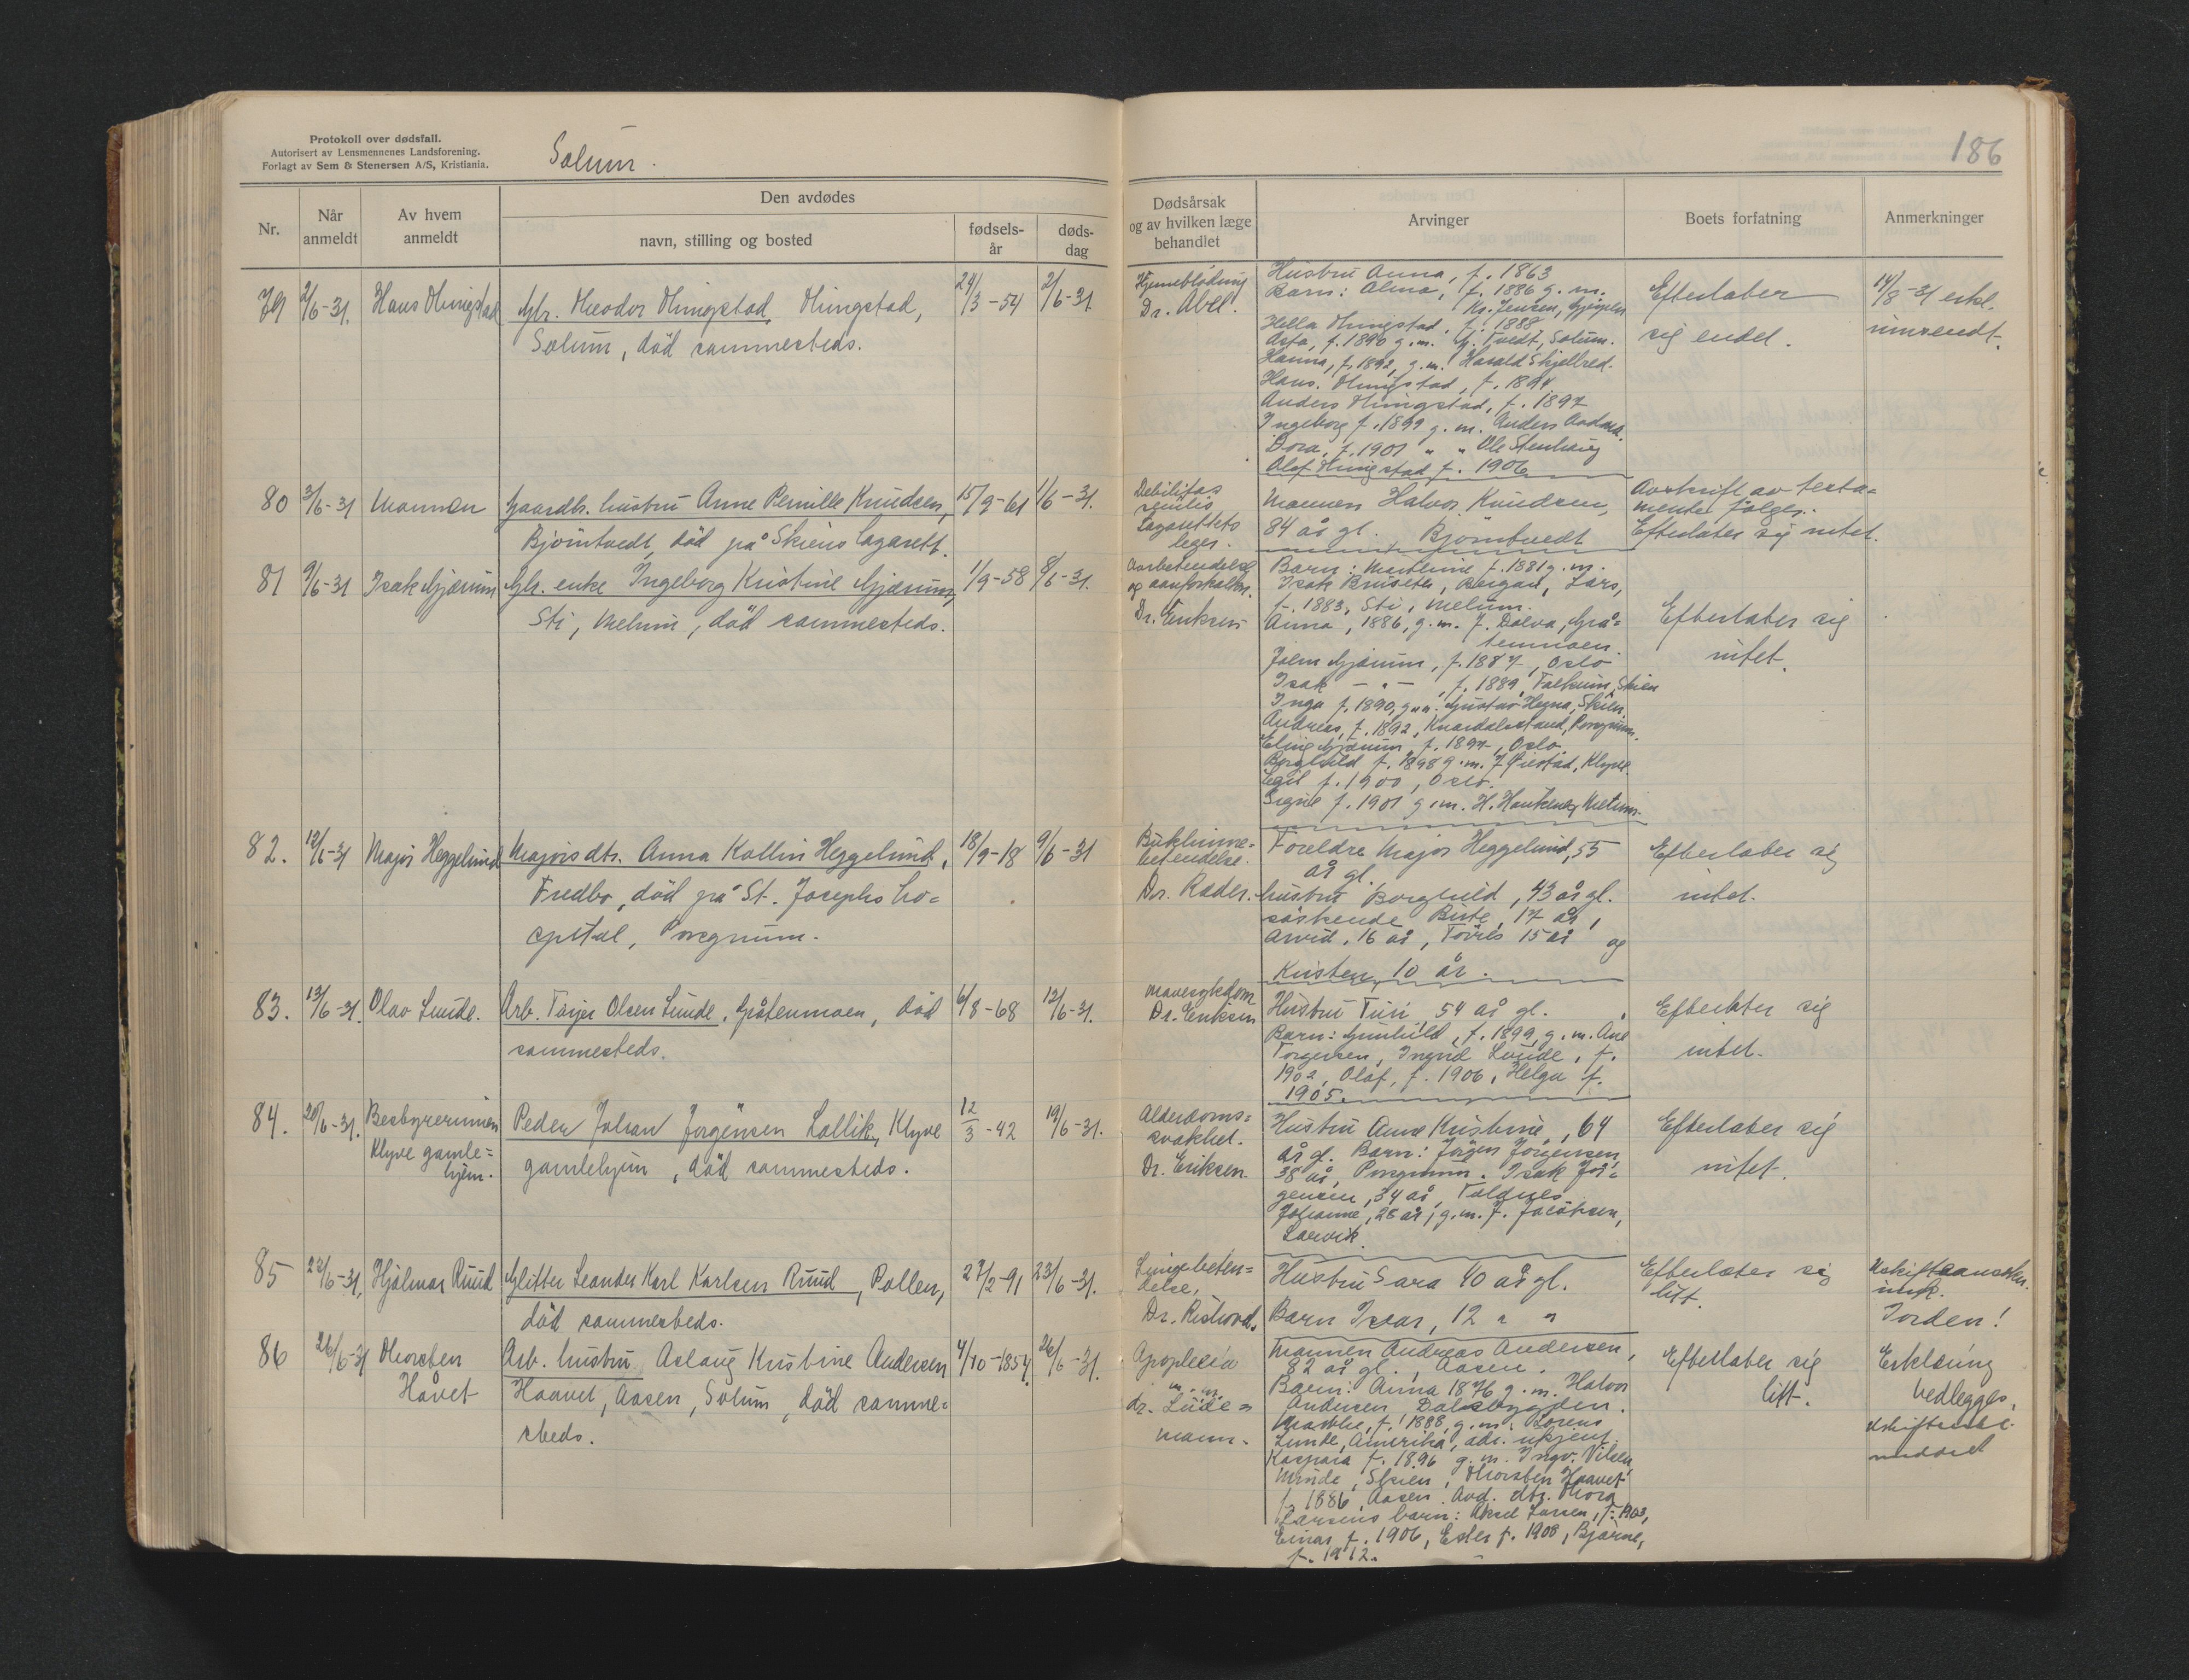 Protokoll over dødsfall.
Autorisert av Lensmennenes Landsforening.
Forlagt av Sem & Stenersen A/S, Kristiania.
Solum.
186
Nr.
Når anmeldt
Av hvem anmeldt
Den avdødes
navn, stilling og bosted
fødsels-år
døds-dag
Dødsårsak og av hvilken læge behandlet
Arvinger
Boets forfatning
Anmerkninger
79 2/6-31. Hans Mingstad Gbr. Theodor Mingstad, Mingstad, 24/3-54 2/6-31.
Solum, död sammesteds.
Hjerneblödning
Dr. Abel.
Hustru Anna, f. 1863
Barn: Alma, f. 1886 g. m.
Kr. Jensen, Gjerpen
Hella Mingstad, f. 1888
Asta, f. 1890 g. m. Tvedt, Solum.
Hanna, f. 1892, g. m. Harald Skjelbred.
Hans Mingstad, f. 1894
Anders Mingstad, f. 1897
Ingeborg f. 1899 g. m. Anders
Dora, f. 1901 " " Ole Stenhaug
Olaf Mingstad f. 1906
Efterlater
sig endel.
14/8-31 erkl.
innsendt.
80 3/6-31 Mannen Gaardbr. hustru Anne Pernille Knudsen, 15/9-61 1/6-31.
Bjørntvedt, död på Skiens Lazarett.
Debilitas
senilis
Lazarettets
leger.
Mannen Halvor Knudsen,
84 år gl. Bjørntvedt
Avskrift av testa=
mente følger.
Efterlater sig intet.
81 9/6-31 Isak Gjærum Gbr. enke Ingeborg Kristine Gjærum, 1/9-58 8/6-31.
Sti, Melum, död sammesteds.
og
Dr. Eriksen
Barn: Marthine f. 1881 g. m.
Isak Kruseter, Lars,
f. 1883, Sti, Melum.
Anna, 1886, g. m. J. Dalva, Grå=
tenmoen.
John Gjærum, f. 1887, Oslo
Isak - " - , f. 1889, Falkum, Skien
Inga f. 1890, g. m. Gustav Hegna, Skien.
Andreas, f. 1892, Knardalstrand, Porsgrunn.
Gjærum f. 1897, Oslo.
Borghild f. 1898 g. m. J. Øiestad, Klyve.
Egil f. 1900, Oslo.
Signe f. 1901 g. m. H. Haukenes, Melum.
Efterlater sig
intet.
82. 12/6-31 Major Heggelund Majors dtr. Anna Kollin Heggelund, 18/9-18 9/6-31
Fredbo, död på St. Josephs ho=
spital, Porsgrunn.
Bukhinne=
betendelse.
Dr. Rader.
Foreldre Major Heggelund, 55
år gl.
hustru Borghild, 43 år gl.
söskende Birte, 17 år,
Arvid, 16 år, 15 år og
Kristen, 10 år.
Efterlater sig
intet.
83. 13/6-31. Olav Lunde. Arb. Tarjer Olsen Lunde, Gråtenmoen, död 6/8-68 12/6-31.
sammesteds.
Mavesykdom
Dr. Eriksen
Hustru Turi, 54 år gl.
Barn: Gunhild, f. 1899, g. m. Ane
Torgersen, Ingrid Lunde, f.
1902, Olaf, f. 1906, Helga f.
1905.
Efterlater sig
intet.
84. 20/6-31. Bestyrerinnen Peder Johan Jørgensen Lallik, Klyve 12/3-42 19/6-31.
Klyve gamle=
hjem.
gamlehjem, död sammesteds.
Alderdoms=
svakhet.
Dr. Eriksen.
Hustru Anne Kristine, 64
år gl. Barn: Jörgen Jörgensen,
38 år, Porsgrunn. Isak Jör=
gensen, 34 år, Voldnes
Johanne, 28 år, g. m. J. Jacobsen,
Larvik.
Efterlater sig
intet.
85 23/6-31. Hjalmar Ruud Glitter Leander Karl Karlsen Ruud, Pollen, 27/2-91 23/6-31.
död sammesteds.
Lungebeten=
delse,
Dr. Ristvod.
Hustru Sara 40 år gl.
Barn Ivar, 12 " "
Efterlater sig
litt.
Jorden!
86 26/6-31 Thorsten Arb. hustru Aslaug Kristine Andersen 4/10-1854. 26/6-31.
Håvet
Haavet, Aasen, Solum, död samme=
steds.
Apoplexia
m. m.
dr. Lude=
mann.
Mannen Andreas Andersen,
82 år gl., Aasen.
Barn: Anna 1876 g. m. Halvor
Andersen, Dalsbygden.
Marthe, f. 1888, g. m. Lorens
Lunde, Amerika, adr. ukjent.
Kaspara f. 1896 g. m. Ingv. Vilsen,
Minde, Skien, Thorsten Haavet
f. 1886, Aasen. Avd. dtr. Thora
Larsens barn: Aksel Larsen, f. 1903,
Einar f. 1906, Ester f. 1908, Bjarne,
f. 1912.
Efterlater sig
litt.
Erklæring
vedlegges.